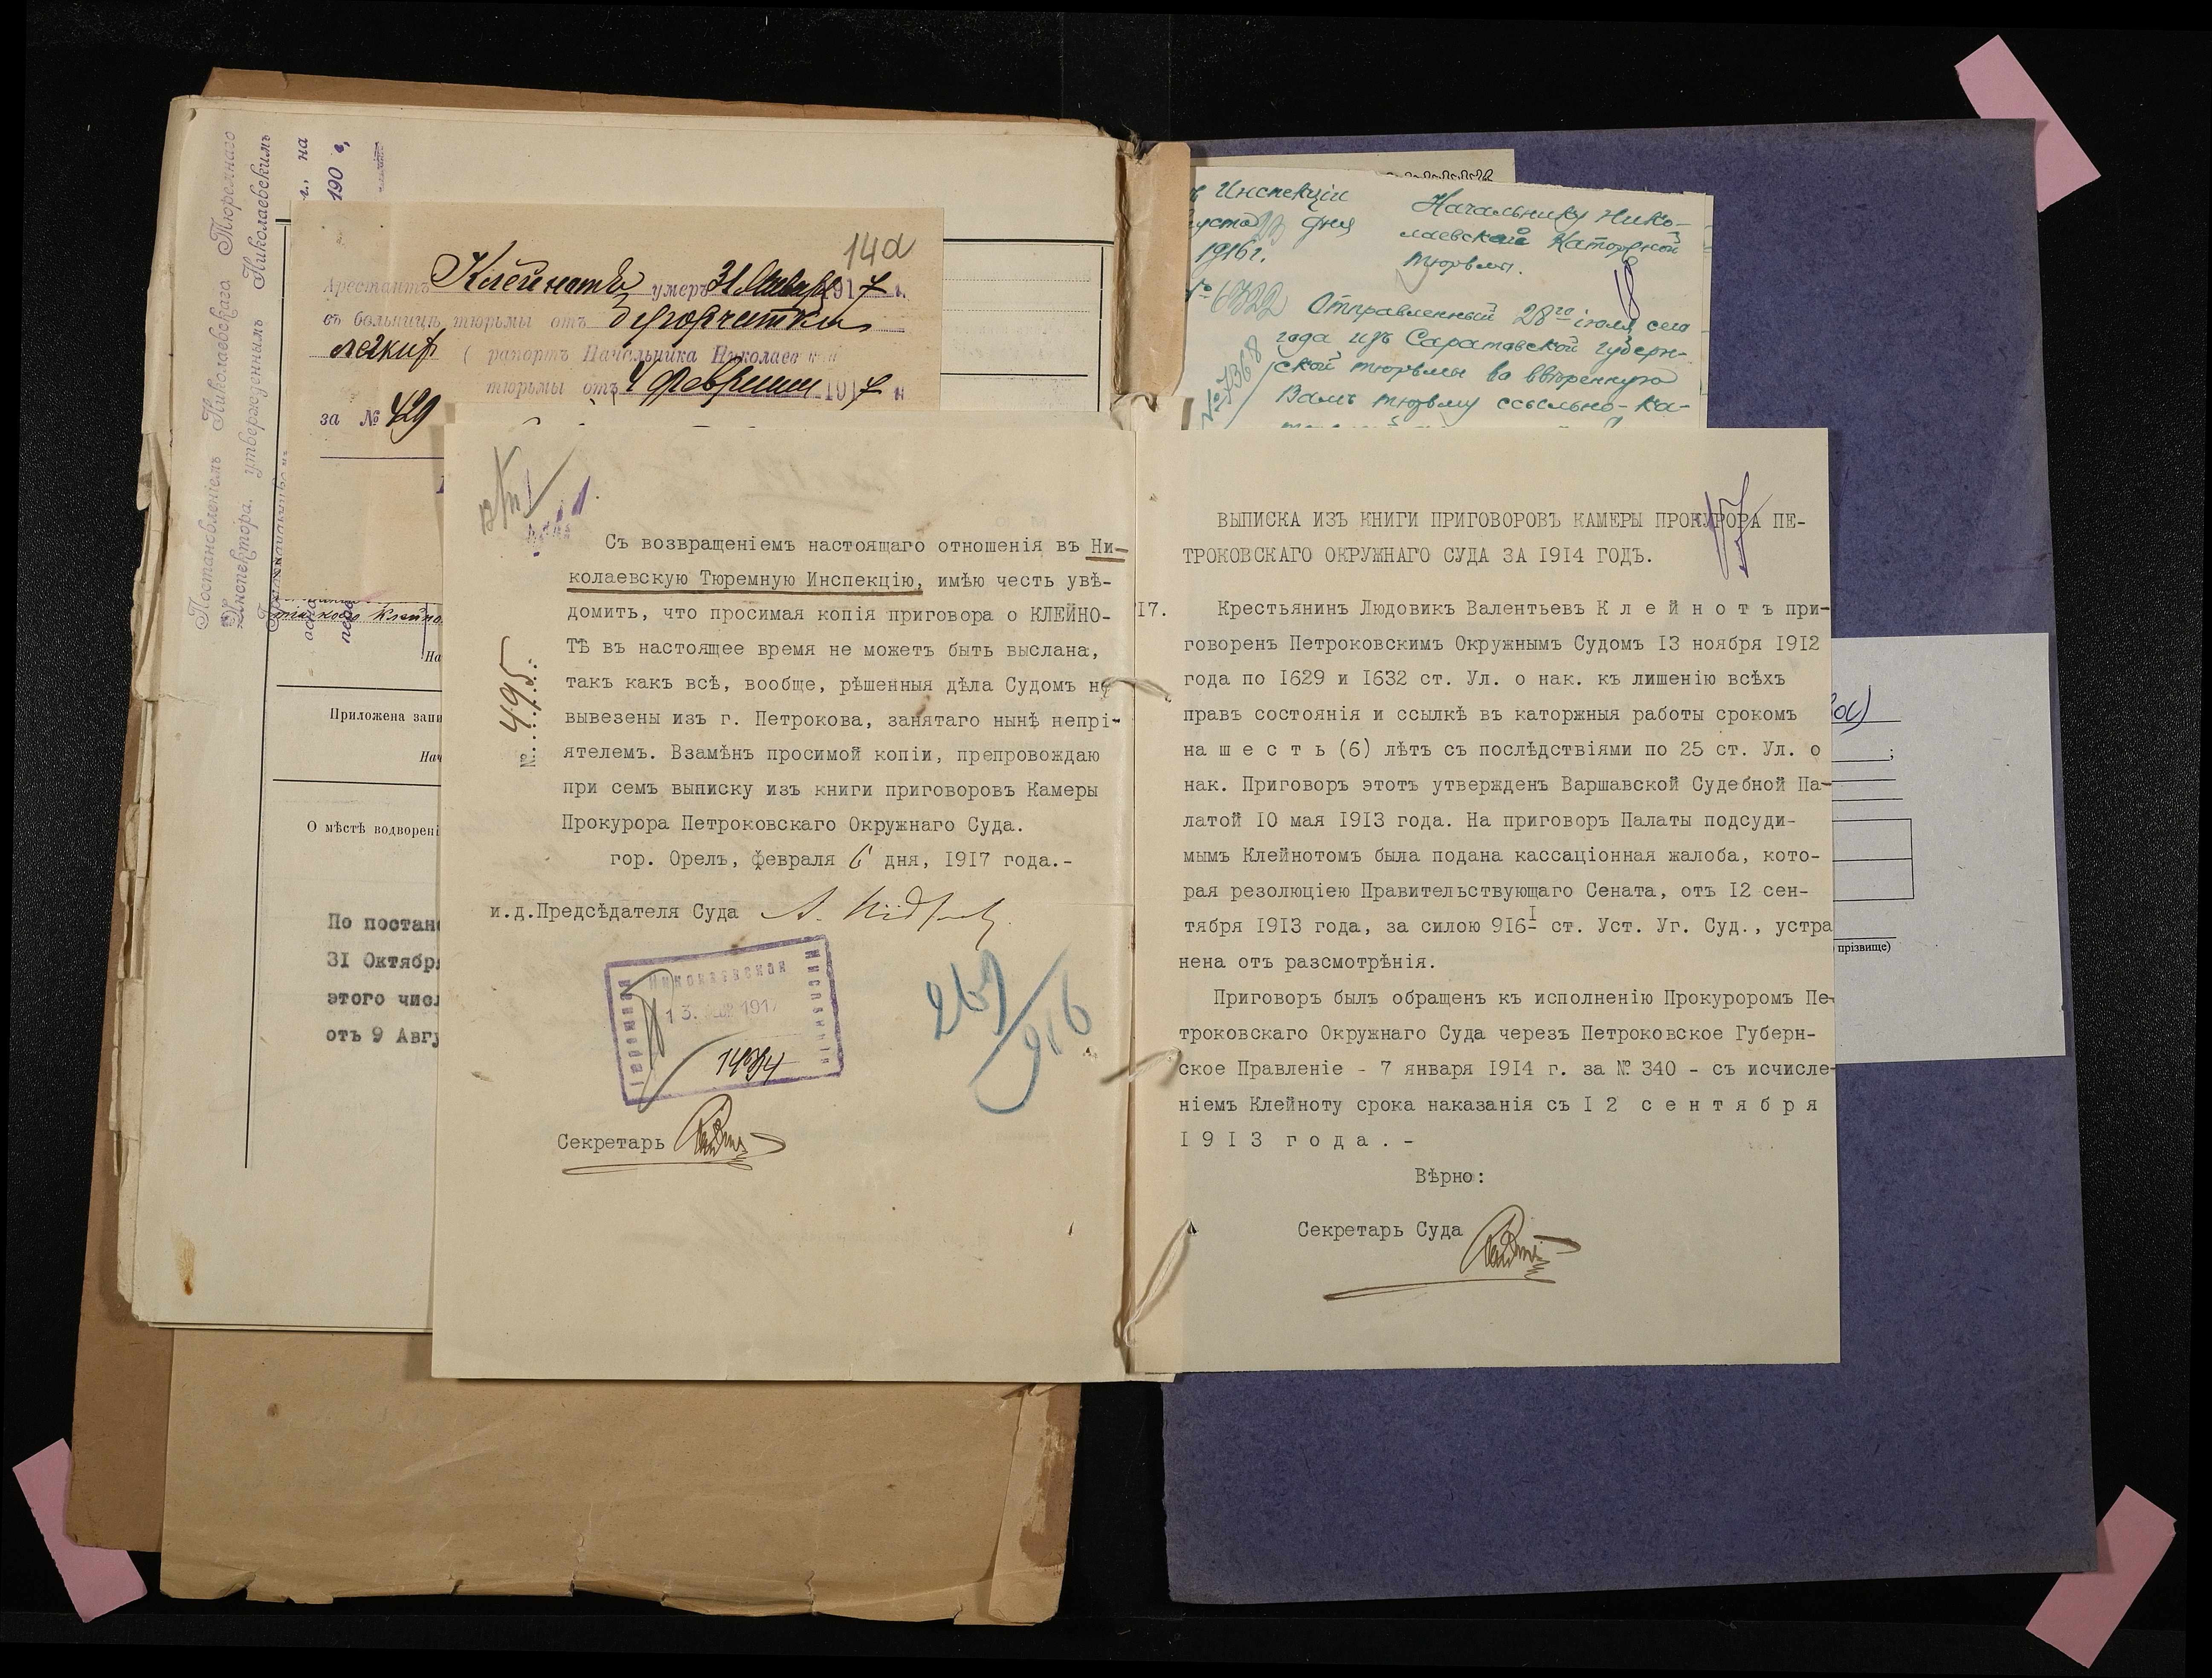 Постановленіемъ Николаевскаго Тюремнаго
Инспектора, утвержденнымъ Николаевскимъ
г., на
190 г,
14а
Арестантъ Клейнотъ умеръ 31 Января 1917 г.
въ больницѣ тюрьмы отъ бугорчатки
легкихъ ( рапортъ Начальника Николаевской
тюрьмы отъ 4 февраля 1917 г.
за № 429
На
Приложена запи
Нач
О мѣстѣ водворені
По постано
31 Октября
этого числ
отъ 9 Авгу
Съ возвращеніемъ настоящаго отношенія въ Ни-
колаевскую Тюремную Инспекцію, имѣю честь увѣ-
домить, что просимая копія приговора о КЛЕЙНО-
ТѢ въ настоящее время не можетъ быть выслана,
такъ какъ всѣ, вообще, рѣшенныя дѣла Судомъ не
вывезены изъ г. Петрокова, занятаго нынѣ непрі-
ятелемъ. Взамѣнъ просимой копіи, препровождаю
при семъ выписку изъ книги приговоровъ Камеры
Прокурора Петроковскаго Окружнаго Суда.
гор. Орелъ, февраля 6 дня, 1917 года.-
№ 495
и.д.Предсѣдателя Суда
Николаевская
Тюремная
Инспекція
13. ФЕВР 1917
267/916
Секретарь
Инспекціи
дня
1916г.
№ 6322
№ 7368
Начальнику Нико-
лаевской Каторжной
тюрьмы.
18
Отправленный 28го іюля сего
года изъ Саратовской губерн-
ской тюрьмы во ввѣренную
Вамъ тюрьму ссыльно-ка-
17
ВЫПИСКА ИЗЪ КНИГИ ПРИГОВОРОВЪ КАМЕРЫ ПРОКУРОРА ПЕ-
ТРОКОВСКАГО ОКРУЖНАГО СУДА ЗА 1914 ГОДЪ.
17. Крестьянинъ Людовикъ Валентьевъ К л е й н о т ъ при-
говоренъ Петроковскимъ Окружнымъ Судомъ 13 ноября 1912
года по 1629 и 1632 ст. Ул. о нак. къ лишенію всѣхъ
правъ состоянія и ссылкѣ въ каторжныя работы срокомъ
на ш е с т ь (6) лѣтъ съ послѣдствіями по 25 ст. Ул. о
нак. Приговоръ этотъ утвержденъ Варшавской Судебной Па-
латой 10 мая 1913 года. На приговоръ Палаты подсуди-
мымъ Клейнотомъ была подана кассаціонная жалоба, кото-
рая резолюціею Правительствующаго Сената, отъ 12 сен-
тября 1913 года, за силою 916I ст. Уст. Уг. Суд., устра
нена отъ разсмотрѣнія.
Приговоръ былъ обращенъ къ исполненію Прокуроромъ Пе-
троковскаго Окружнаго Суда черезъ Петроковское Губерн-
ское Правленіе - 7 января 1914 г. за № 340 - съ исчисле-
ніемъ Клейноту срока наказанія съ 1 2 с е н т я б р я
1 9 1 3 г о д а . -
Вѣрно:
Секретарь Суда
прізвище)